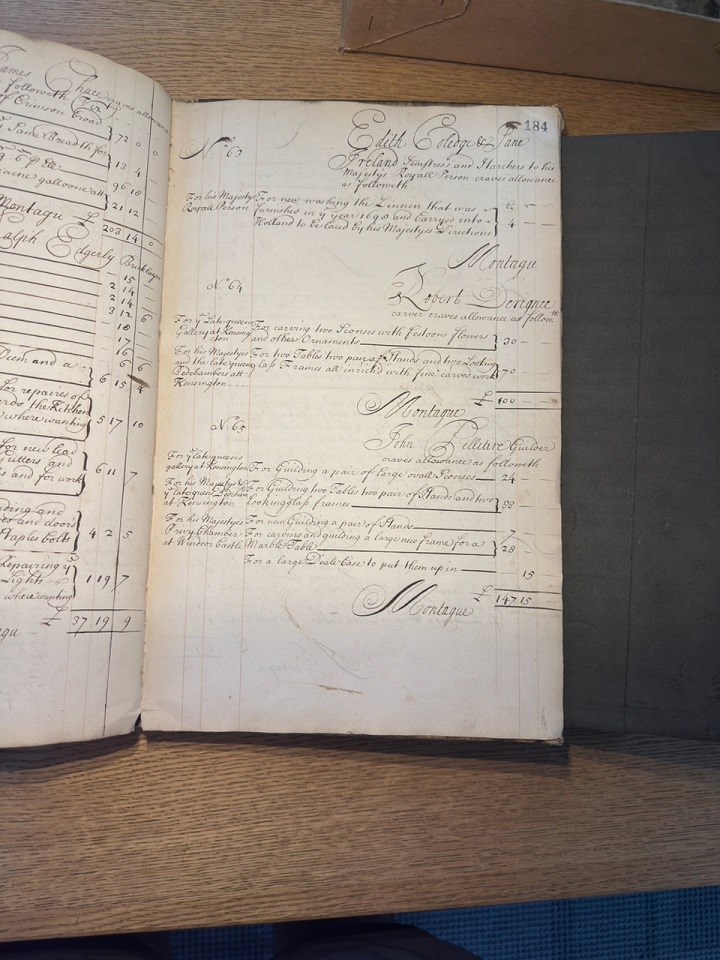 James Chace craves allowance
followeth Viz
of Crimson broad
72 0 0
Same Breadth for
13 4 -
96 18
galloome att
21 12
Montagu £ 203 14 0
alph Edgerly Bricklayer
- 15 -
2 14 -
2 14 -
3 12 6
- 18
- 17
- 16 6
- 6 6
Diem and a
6 15 4
for repaires of
the Kitchen
where wanting
5 17 10
for new lead
Gutters and
s and for work
6 11 7
nding and
and doors
Staples bolts
4 2 5
Repairing ye
Lights
where wanting
1 19 7
£ 37 19 9
184
No. 63
Edith Coledge & Jane
Ireland Semstress and Starchers to his
Majestys Royall Person craves allowance
as followeth
For his Majestys For new washing the Linnen that was
Royall Person furnished in ye year 1698 and carryed into
Holland to be laced by his Majestyes Directions
£ - -
4 - -
Montagu
No. 64
Robert Derignee
carver craves allowance as followth
For ye Late queens
Gallery at Kensing For carving two Sconses with Festoons flowers
cton and other Ornaments 30 - -
For his Majestys For two Tables two pair of Stands and two Looking
and the late queens glass Frames all inrich'd with fine carved work 70 - -
Bedchambers att
Kensington
£ 100 - -
Montague
No. 65
John Pelletire Guilder
craves allowance as followeth
For ye late queens
gallery at Kensington For Guilding a pair of large ovall Sconses 24 -
For his Majestys &
ye late queens Bedcham For Guilding two Tables two pair of Stands and two
at Kensington Lookingglass frames 88 - -
For his Majestys For new Guilding a pair of Stands 7 -
Privy Chamber For carving and guilding a large new frame for a
at Windsor Castle Marble Table 28 -
For a large Deale Case to put them up in 15
£ 147 15 -
Montague